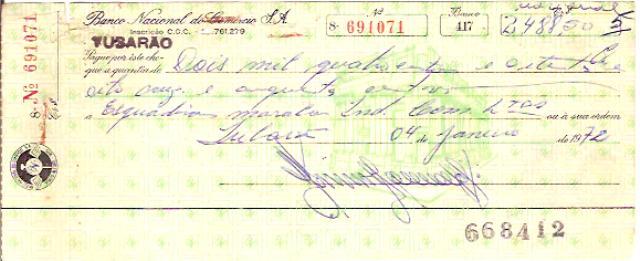 Banco Nacional do Comércio S.A. Nº Banco
Inscrição C.G.C. 8- 691071 417 2.488,50
TUBARÃO
Pague por êste che-
que a quantia de Dois mil quatrocentos e oitenta e
oito e cinquenta centavos
a Esquadrias Ind. Com. Ltda ou à sua ordem
Tubarão 04 de Janeiro de 1972
8- Nº 691071
668412